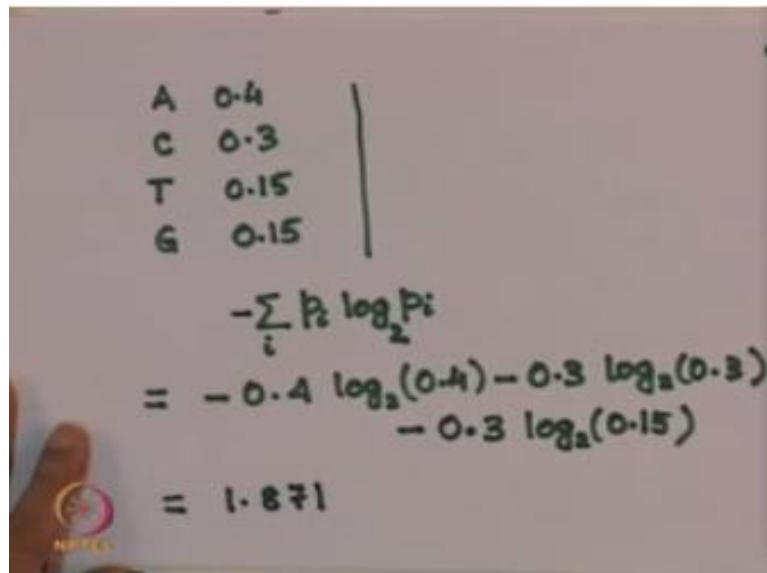 A 0.4
C 0.3
T 0.15
G 0.15
-∑ᵢ pᵢ log₂ pᵢ
= - 0.4 log₂(0.4) - 0.3 log₂(0.3)
- 0.3 log₂(0.15)
= 1.871
NPTEL